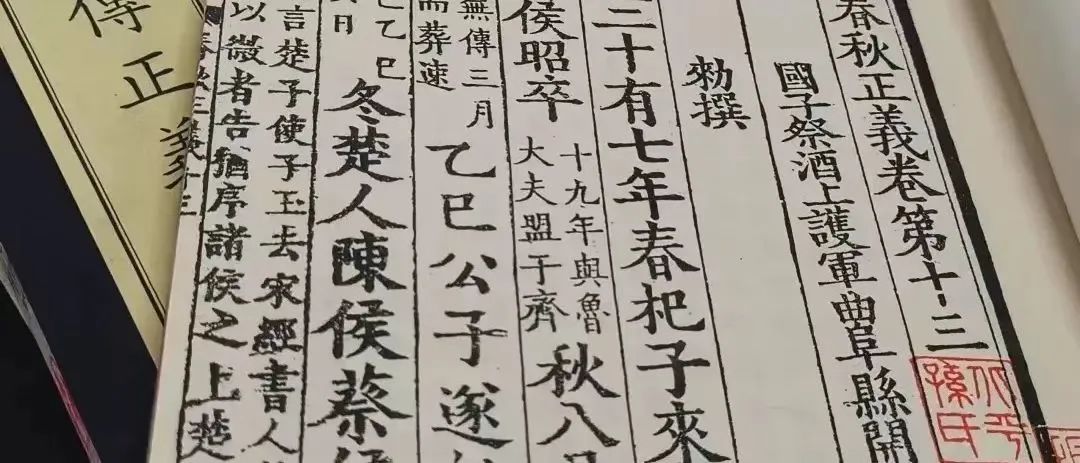 春秋正義卷第十三
國子祭酒上護軍曲阜縣開
勑撰
二十有七年春杞子來
侯昭卒
十九年與魯
大夫盟于齊
秋八月
無傳三月
而葬速
乙巳公子遂
乙巳
日
冬楚人陳侯蔡侯
言楚子使子玉去宋經書人
以微者告猶序諸侯之上楚
傳正
太平
孫氏